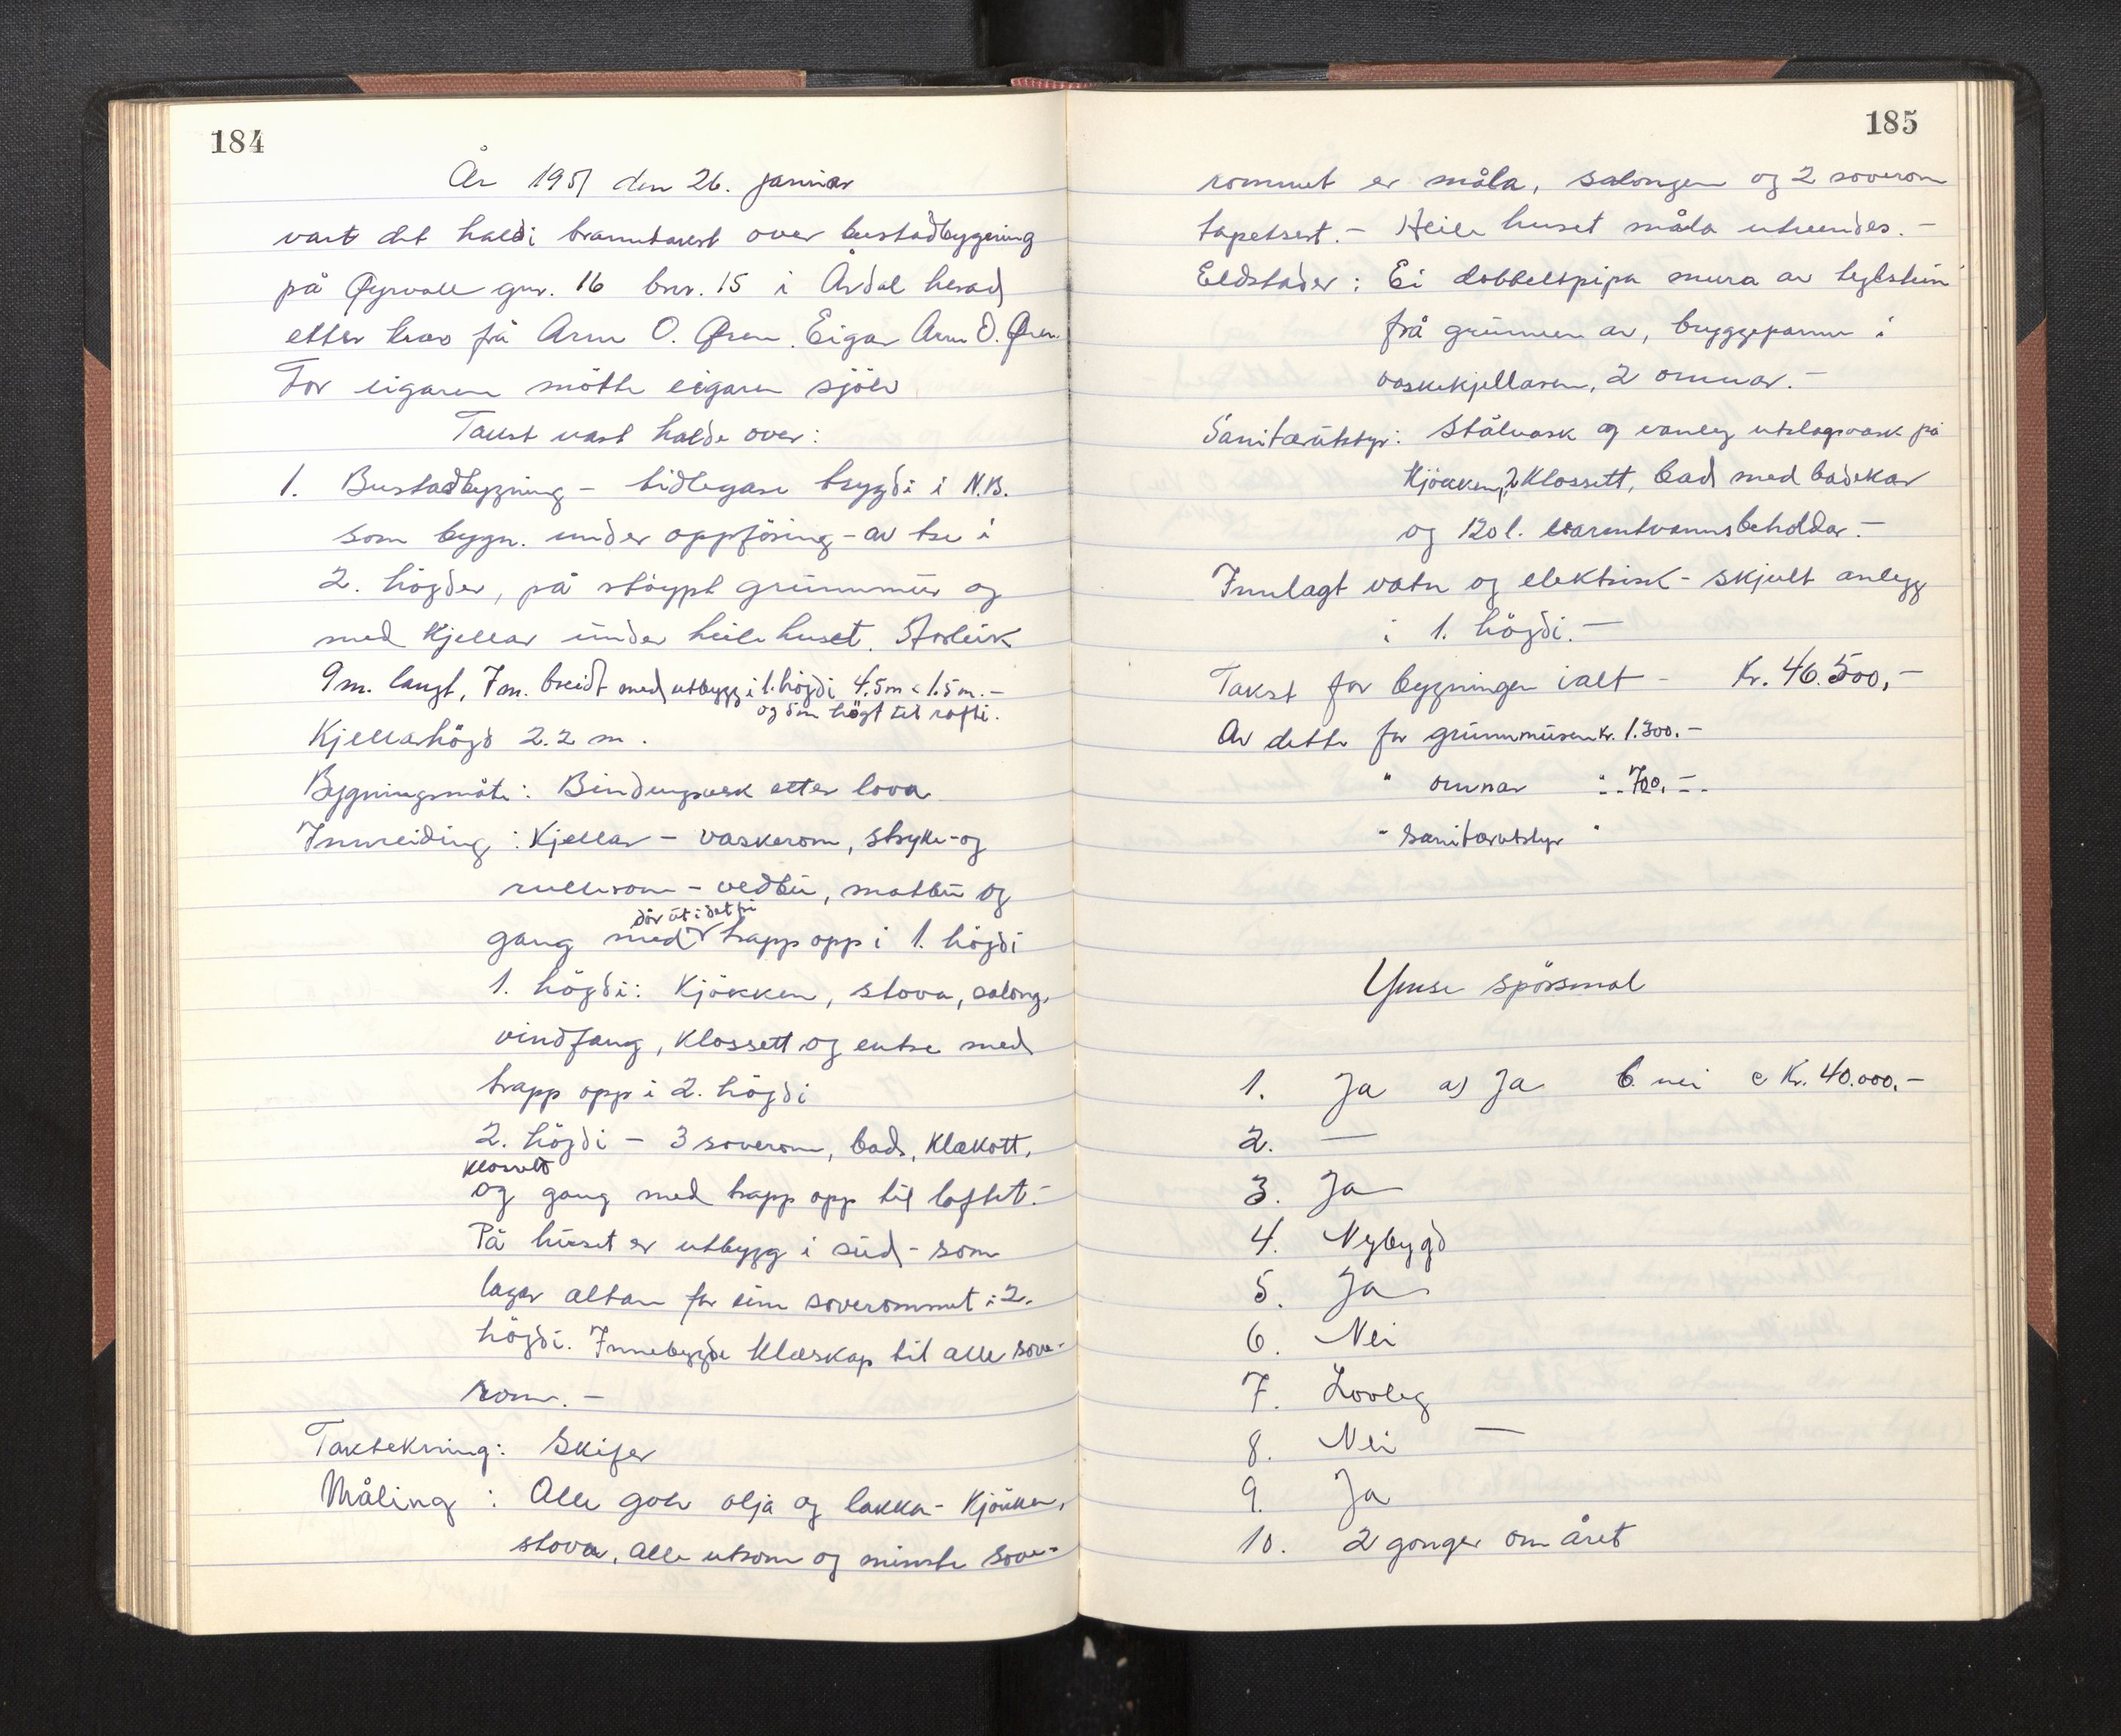 184
År 1951 den 26. januar
vart det haldi branntakst over bustadbygning
på Øyrvoll gnr. 16 bnr. 15 i Årdal herad
etter krav frå Arne O. Øren. Eigar Arne O. Øren.
For eigaren møtte eigaren sjölv
Takst vart halde over:
1. Bustadbygning - tidlegare trygdi i N.B.
som bygn. under oppföring - av tre i
2. högder, på støypt grunnmur og
med kjellar under heile huset. Storleik
9 m. langt, 7 m. breidt med utbygg i 1. högdi 4.5m x 1.5 m. -
og 5m högt til rafti.
Kjellarhögd 2.2 m.
Bygningsmåte: Bindingsverk etter lova
Innreiding: Kjellar - vaskerom, stryke- og
rullerom - vedbu, matbu og
dör ut i det fri
gang med trapp opp i 1. högdi
1. högdi: Kjökken, stova, salong,
vindfang, klossett og entre med
trapp opp i 2. högdi
2. högdi - 3 soverom, bad, klekott,
klossett
og gang med trapp opp til loftet. -
På huset er utbygg i sud - som
lagar altan for eine soverommet i 2.
högdi. Innebygde klæskap til alle sove-
rom. -
Taktekning: Skifer
Måling: Alle golv olja og lakka - Kjökken,
stova, alle utrom og minste sove-
185
rommet er måla, salongen og 2 soverom
tapetsert. - Heile huset måla utvendes. -
Eldstader: Ei dobbeltpipa mura av teglstein
frå grunnen av, bryggepanne i
vaskekjellaren, 2 omnar. -
Sanitærutstyr: Stålvask og vanleg utslagsvask på
Kjökken, 2 Klossett, bad med badekar
og 120 l. varmtvannsbeholdar. -
Innlagt vatn og elektrisk - skjult anlegg
i 1. högdi. -
Takst for bygningen ialt - Kr. 46.500,-
Av dette for grunnmuren kr. 1.300.-
" omnar " 700.-
" sanitærutstyr "
Ymse spörsmal
1. Ja a) Ja b. nei c Kr. 40.000,-
2. —
3. Ja
4. Nybygd
5. Ja
6. Nei
7. Lovleg
8. Nei —
9. Ja
10. 2 gonger om året